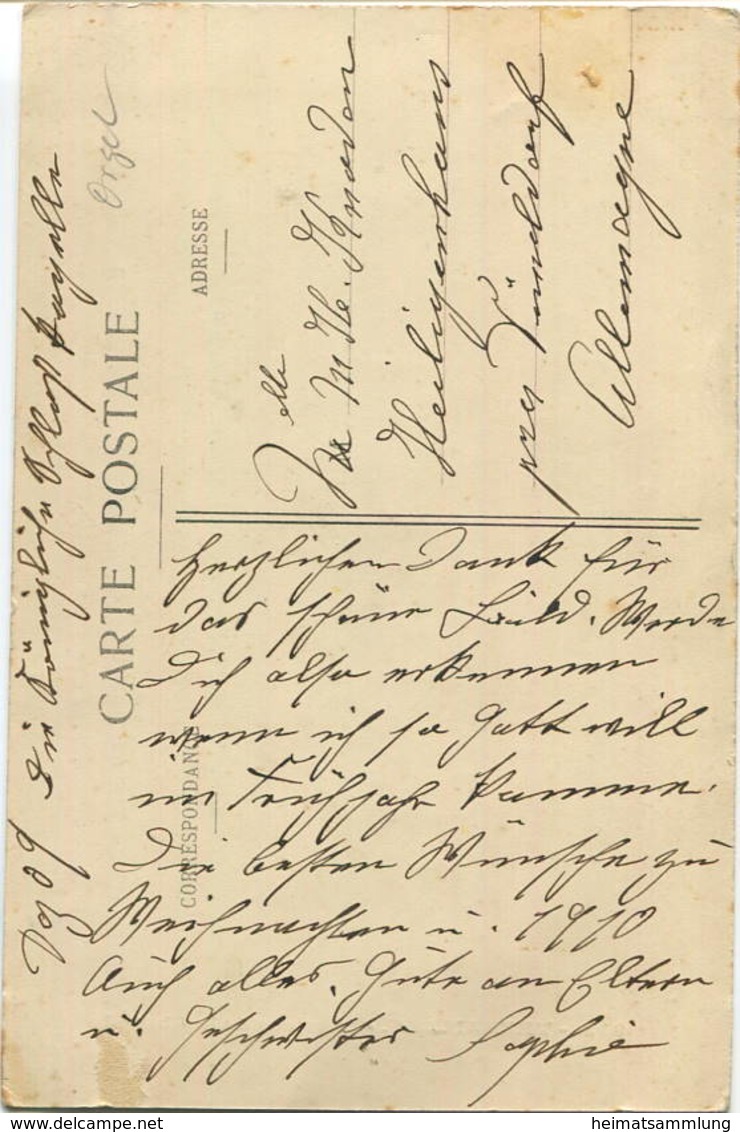 Dez 09 Die Königliche Schloß Kapelle
Orgel
CARTE POSTALE
CORRESPONDANCE
ADRESSE
Herzlichen Dank für
das schöne Bild. Werde
Dich also erkennen
wenn ich so Gott will
im Frühjahr komme.
Die besten Wünsche zu
Weihnachten u. 1910
Auch alles Gute an Eltern
u. Geschwister Sophie
Melle
M. Th.
Heiligenhaus
près Düsseldorf
Allemagne
heimatsammlung